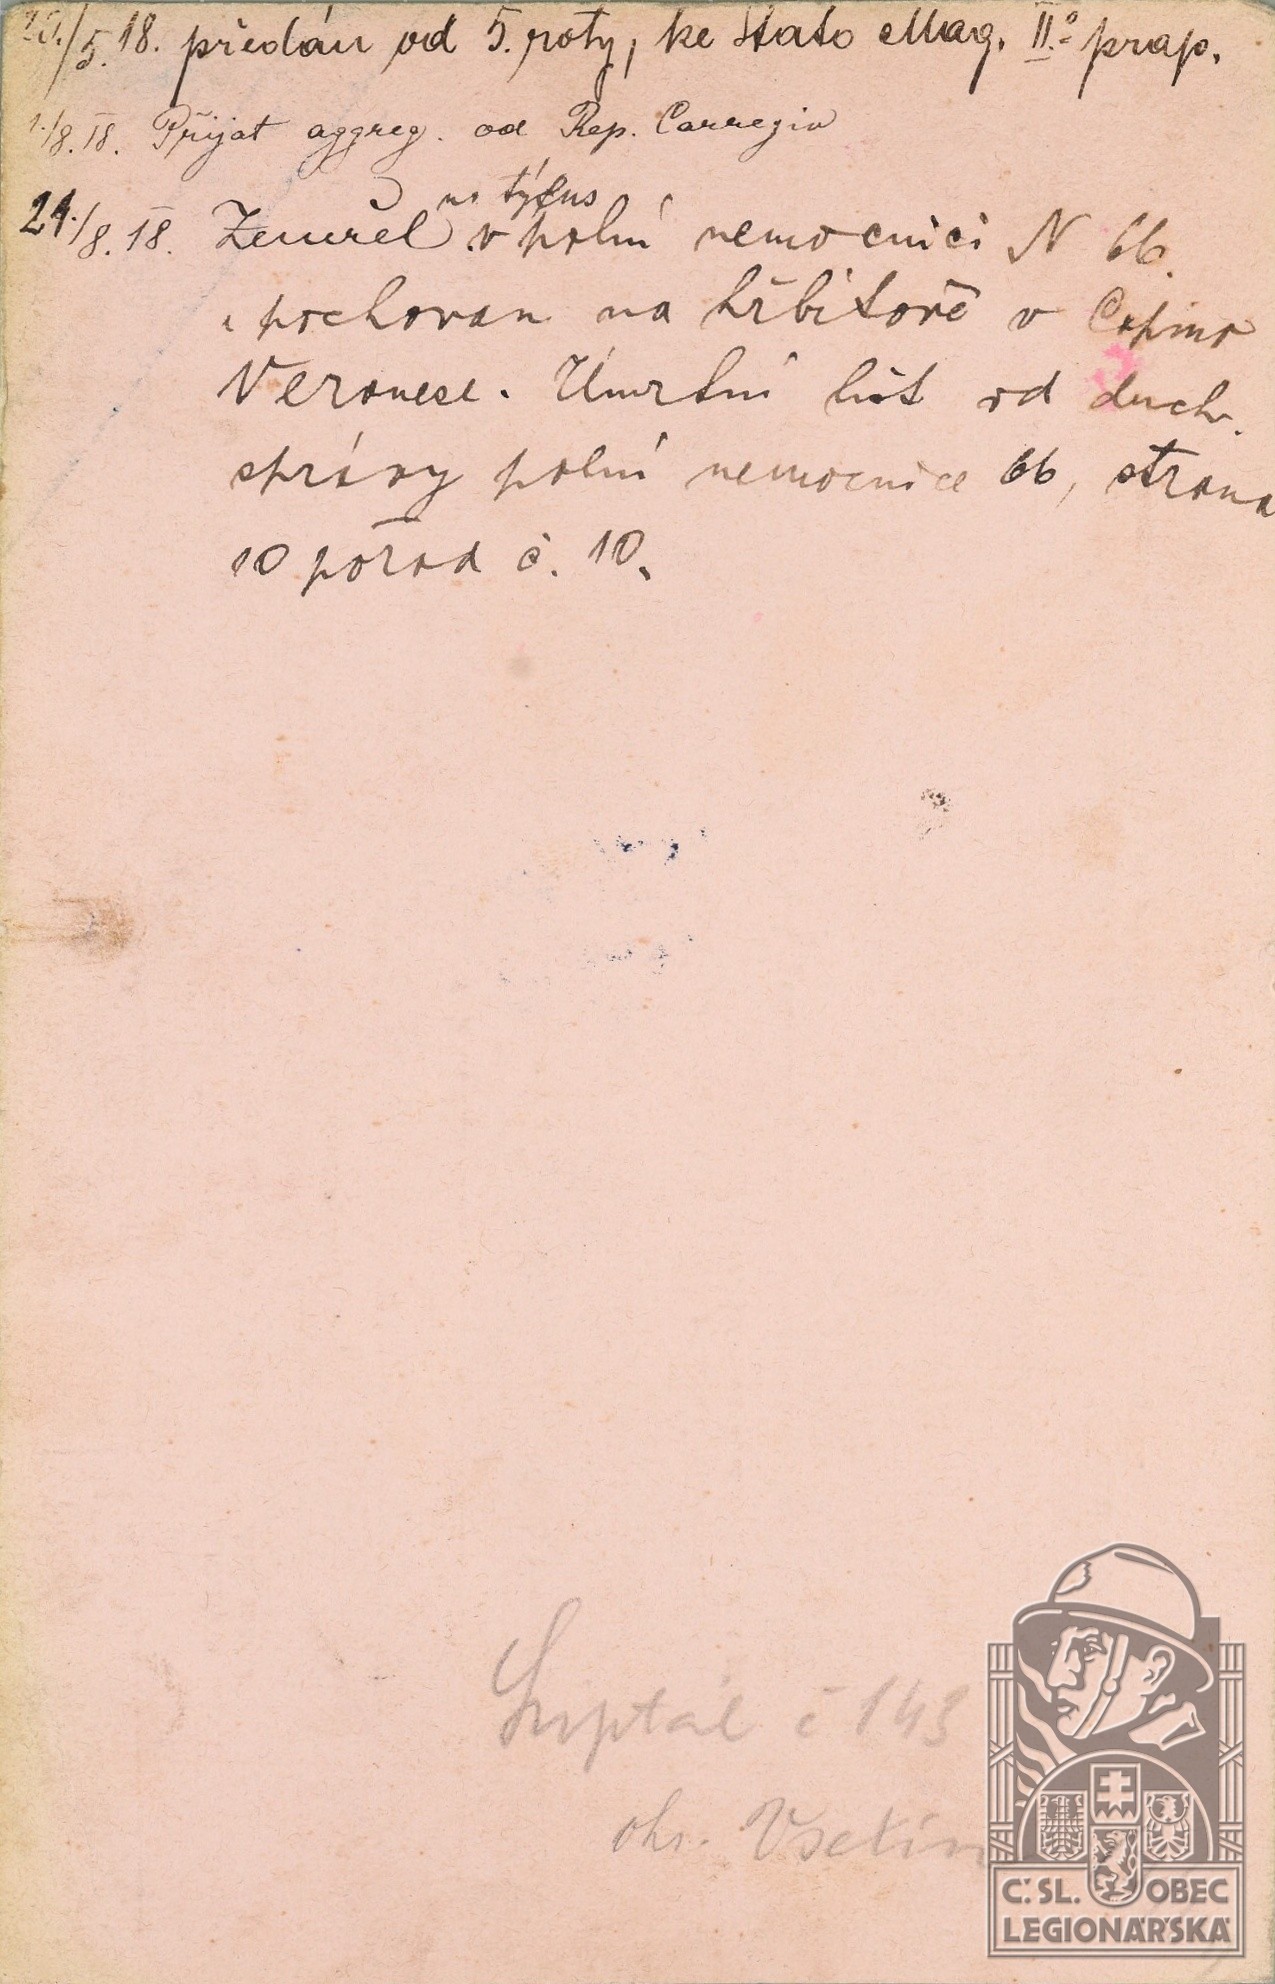 20./5. 18. předán od 5. roty, ke Stato Mag. II.º prap.
1./8. 18. Přijat aggreg. od Rep. Carregio
na týfus
21./8. 18. Zemřel v polní nemocnici N 66.
i pochovan na hřbitově v Caprino
Veronese. Úmrtní list od duch.
správy polní nemocnice 66, strana
10 pořad č. 10.
Liptál č 143
okr. Vsetín
Č. SL. OBEC
LEGIONÁŘSKÁ